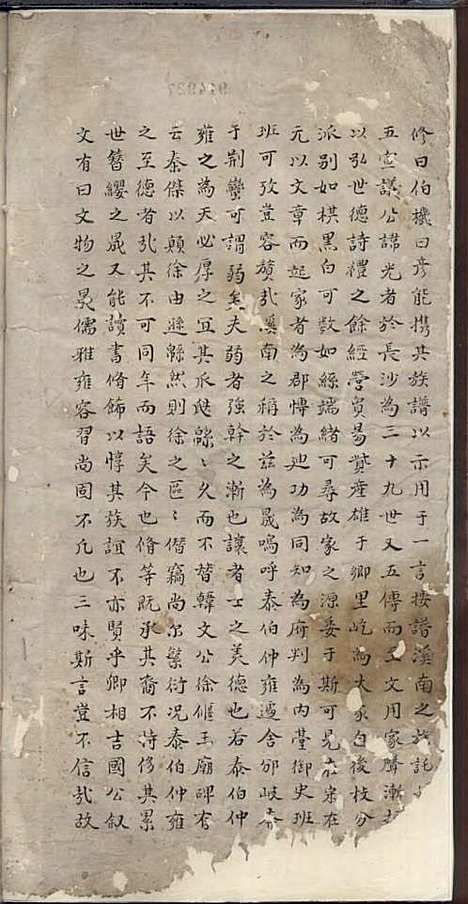 修曰伯機曰彦能携其族譜以示用于一言按譜溪南之族託
五宣議公諱光者於長沙為三十九世又五傳而至文用家勝漸
以弘世德詩禮之餘經營貿易貲產雄于鄉里屹為大家自後枝分
派别如棋黑白可數如絲端緒可尋故家之源委于斯可見宋在
元以文章而起家者為郡博為廸功為同知為府判為内臺御史班
班可攷豈容贅㢤溪南之稱於兹為晟嗚呼泰伯仲雍遜舍邠岐奔
于荆蠻可謂弱矣夫弱者強幹之漸也讓者士之美德也若泰伯仲
雍之為天必厚之宜其瓜瓞綿綿久而不替韓文公徐偃王廟碑有
云秦傑以顛徐由遜緜然則徐之區區僭竊尚尔蕃衍况泰伯仲雍
之至德者㢤其不可同年而語矣今也脩等既承其裔不特侈其累
世簪纓之晟又能讀書脩飾以惇其族誼不亦賢乎卿相吉國公叙
文有曰文物之晟儒雅雍容習尚固不凡也三味斯言豈不信㢤故